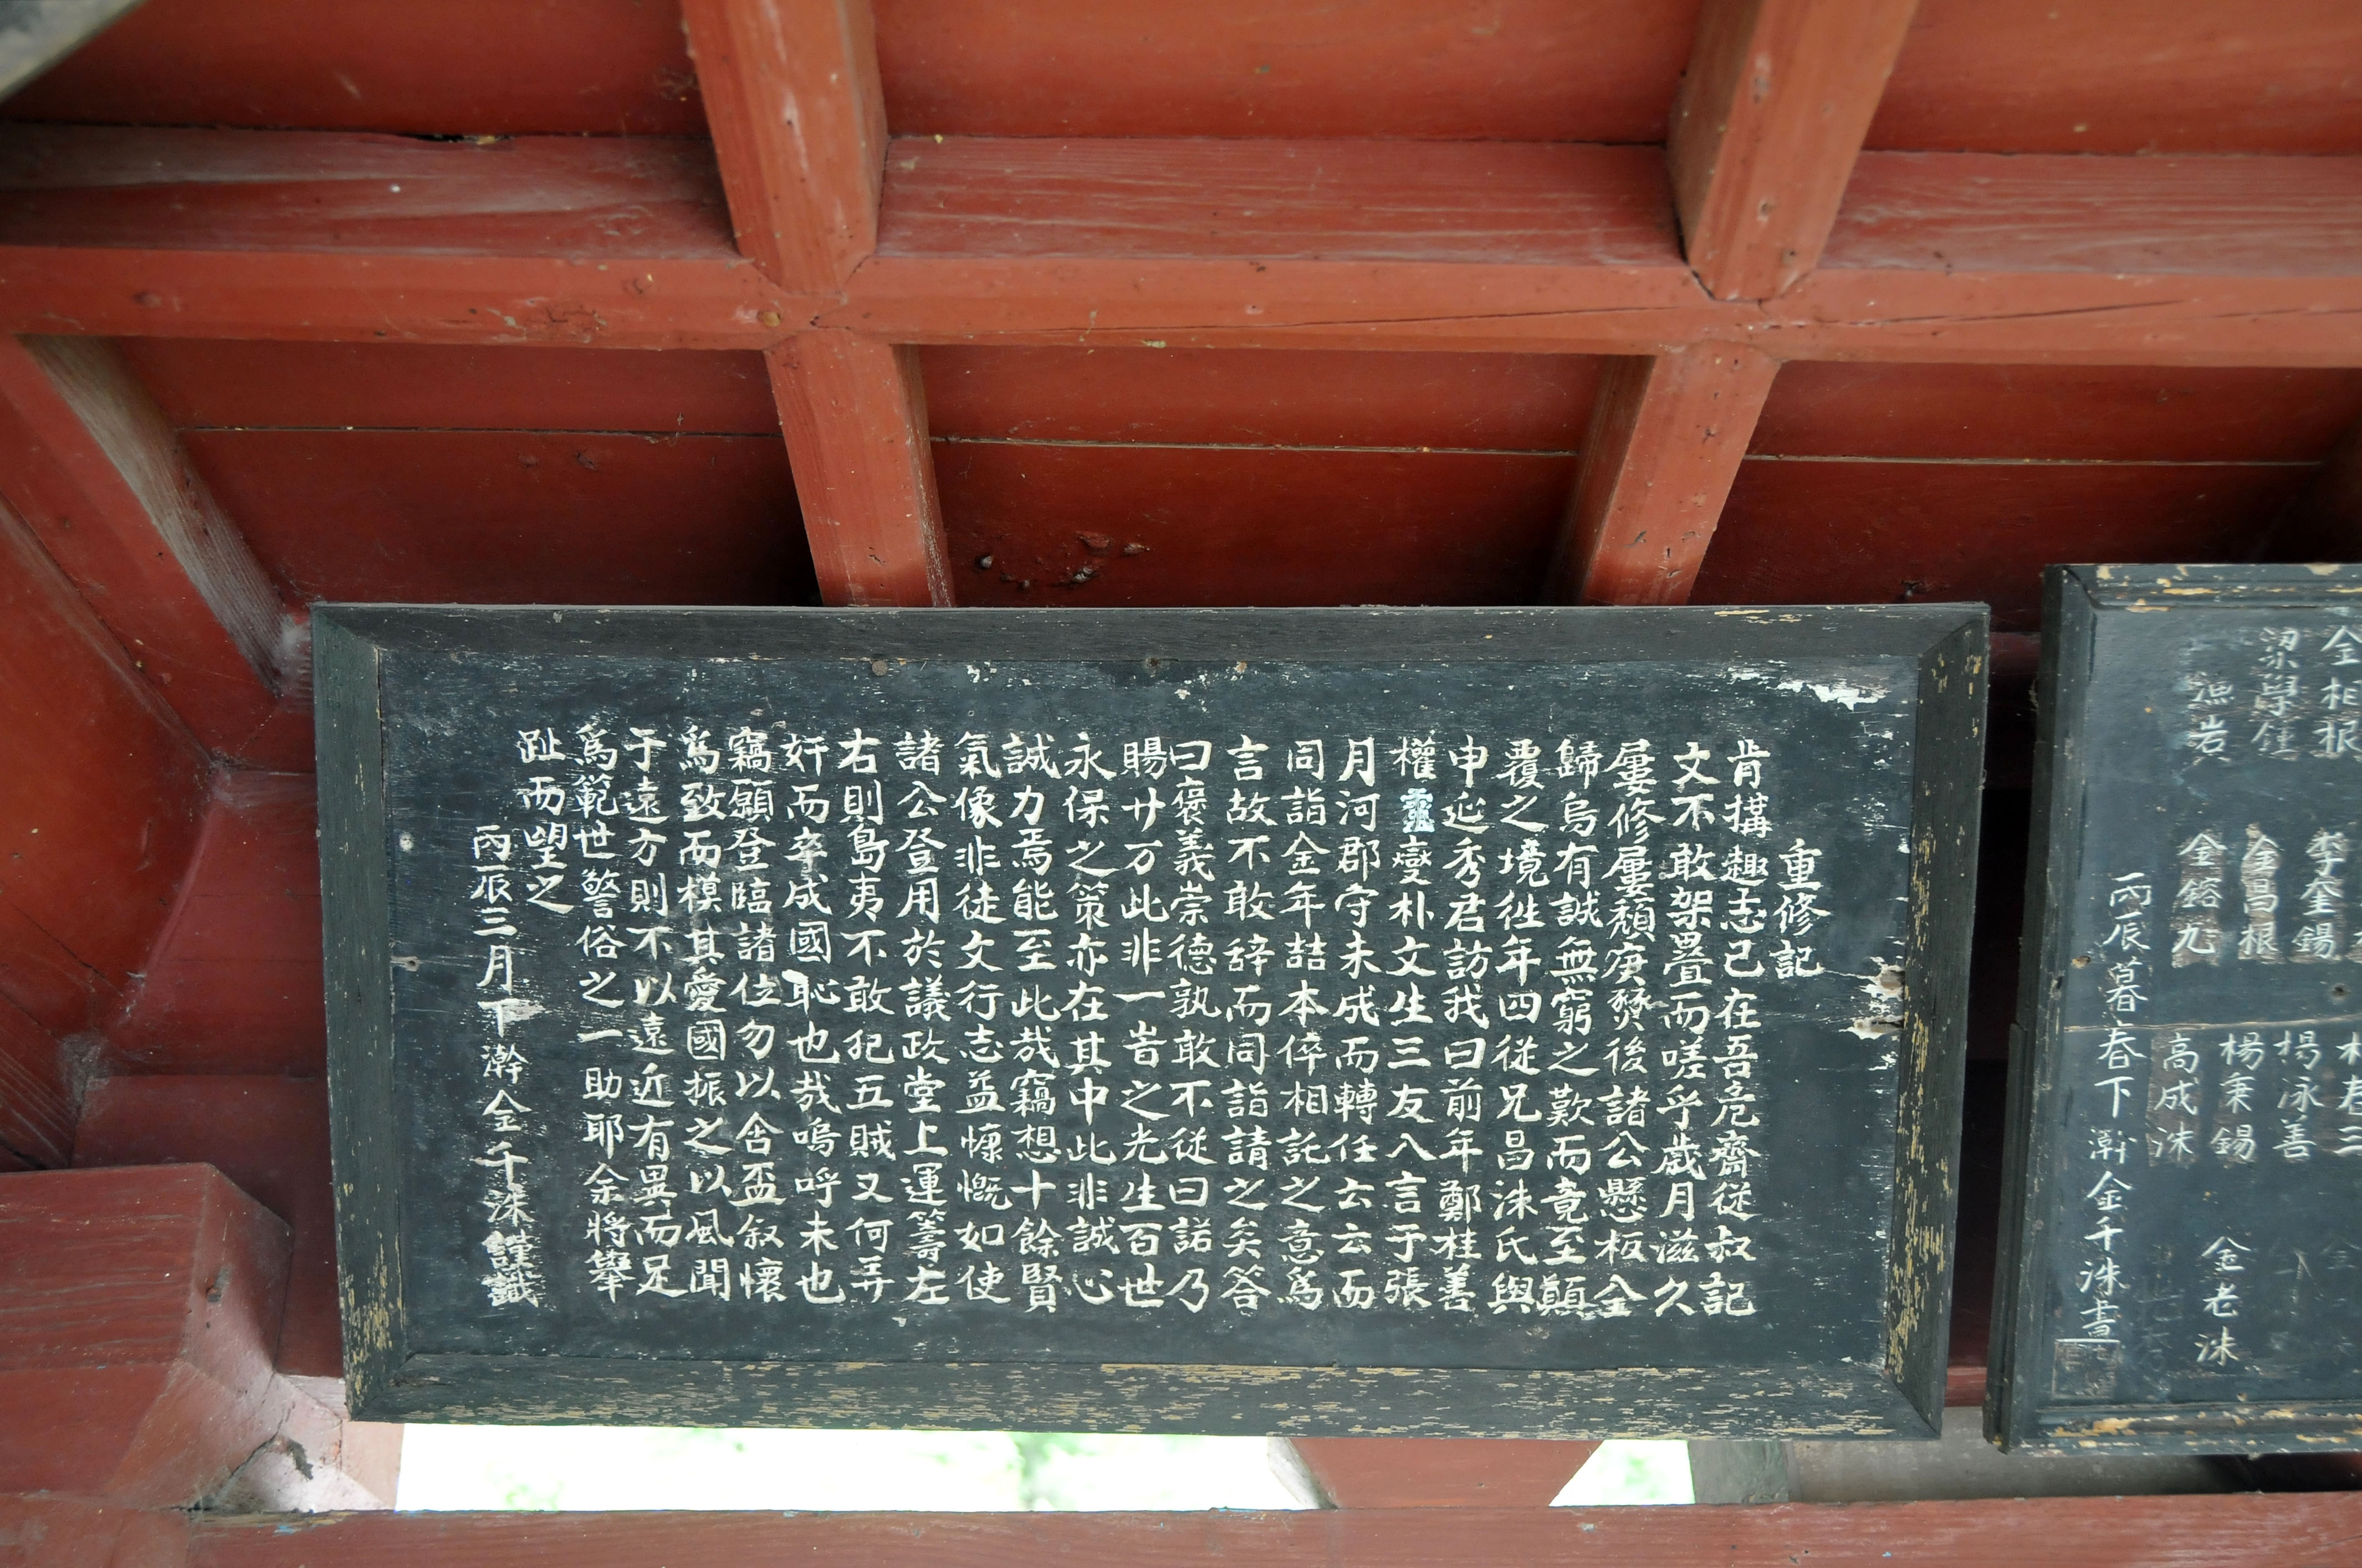 金相根
李奎錫
梁學鍾
金昌根
楊泳善
金鎔九
楊秉錫
金老洙
高成洙
丙辰暮春下澣金千洙書
重修記
肯搆趣志已在吾危齋従叔記
文不敢架疊而嗟乎歲月滋久
屢修屢頹庚燹後諸公懸板金
歸烏有誠無窮之歎而竟至顛
覆之境徃年四從兄昌洙氏與
申延秀君訪我曰前年鄭桂善
權燮朴文生三友入言于張
月河郡守未成而轉任云云而
同詣金年喆本倅相託之意爲
言故不敢辞而同詣請之矣答
曰褒義崇德孰敢不従曰諾乃
賜廾万此非一旹之光生百世
永保之策亦在其中此非誠心
誠力焉能至此哉竊想十餘賢
氣像非徒文行志益慷慨如使
諸公登用於議政堂上運籌左
右則島夷不敢犯五賊又何弄
奸而卒成國恥也哉嗚呼未也
竊願登臨諸位勿以含盃叙懷
爲致而模其愛國振之以風聞
于遠方則不以遠近有異而足
爲範世警俗之一助耶余將擧
趾而望之
丙辰三月下澣金千洙謹識